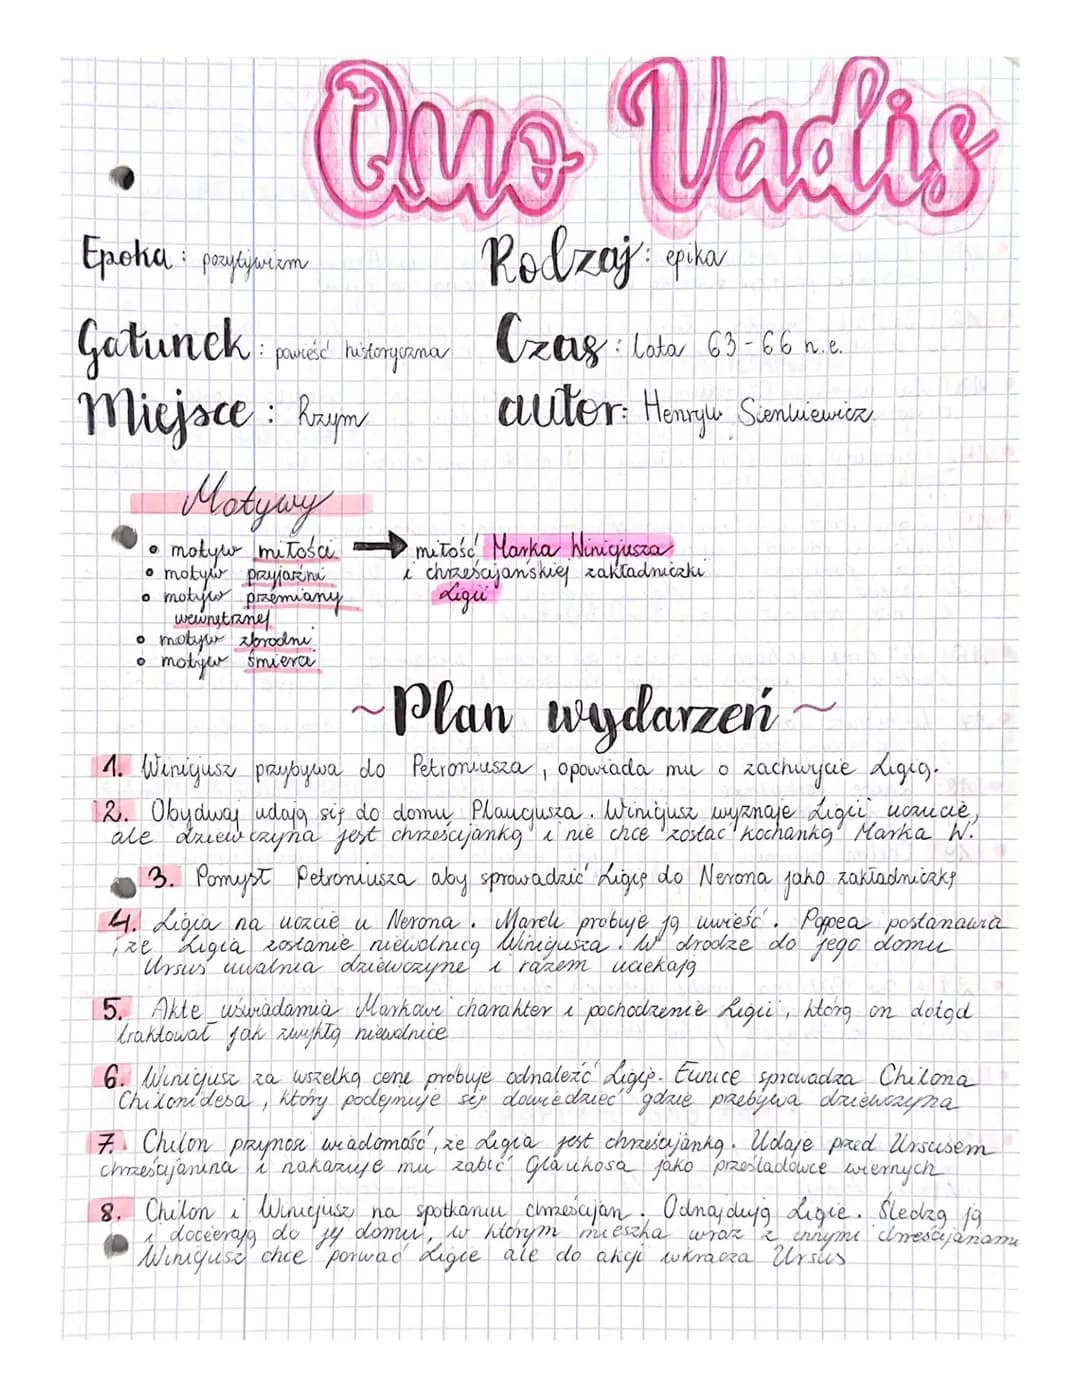 Quo Vadis
Epoka: pozytywizm
Rodzaj: epika
Gatunek: powieść historyczna
Czas: lata 63-66 n.e.
Miejsce: Rzym
autor: Henryk Sienkiewicz
Motywy
• motyw miłości → miłość Marka Winicjusza
• motyw przyjaźni i chrześcijańskiej zakładniczki
• motyw przemiany Ligii
wewnętrznej
• motyw zbrodni
• motyw śmierci
~Plan wydarzeń~
1. Winicjusz przybywa do Petroniusza, opowiada mu o zachwycie Ligią.
2. Obydwaj udają się do domu Plaucjusza. Winicjusz wyznaje Ligii uczucie,
ale dziewczyna jest chrześcijanką i nie chce zostać kochanką Marka W.
3. Pomysł Petroniusza aby sprowadzić Ligię do Nerona jako zakładniczkę
4. Ligia na uczcie u Nerona. Marek probuje ją uwieść. Poppea postanawia
, że Ligia zostanie niewolnicą Winicjusza. W drodze do jego domu
Ursus uwalnia dziewczyne i razem uciekają
5. Akte uświadamia Markowi charakter i pochodzenie Ligii, którą on dotąd
traktował jak zwykłą niewolnice
6. Winicjusz za wszelką cene probuje odnaleźć Ligię. Eunice sprowadza Chilona
Chilonidesa, który podejmuje się dowiedzieć gdzie przebywa dziewczyna
7. Chilon przynosi wiadomość, że Ligia jest chrześcijanką. Udaje przed Ursusem
chrześcijanina i nakazuje mu zabić Glaukosa jako prześladowce wiernych
8. Chilon i Winicjusz na spotkaniu chrześcijan. Odnajdują Ligie. Śledzą ją
i docierają do jej domu, w którym mieszka wraz z innymi chrześcijanami
Winicjusz chce porwać Ligie ale do akcji wkracza Ursus